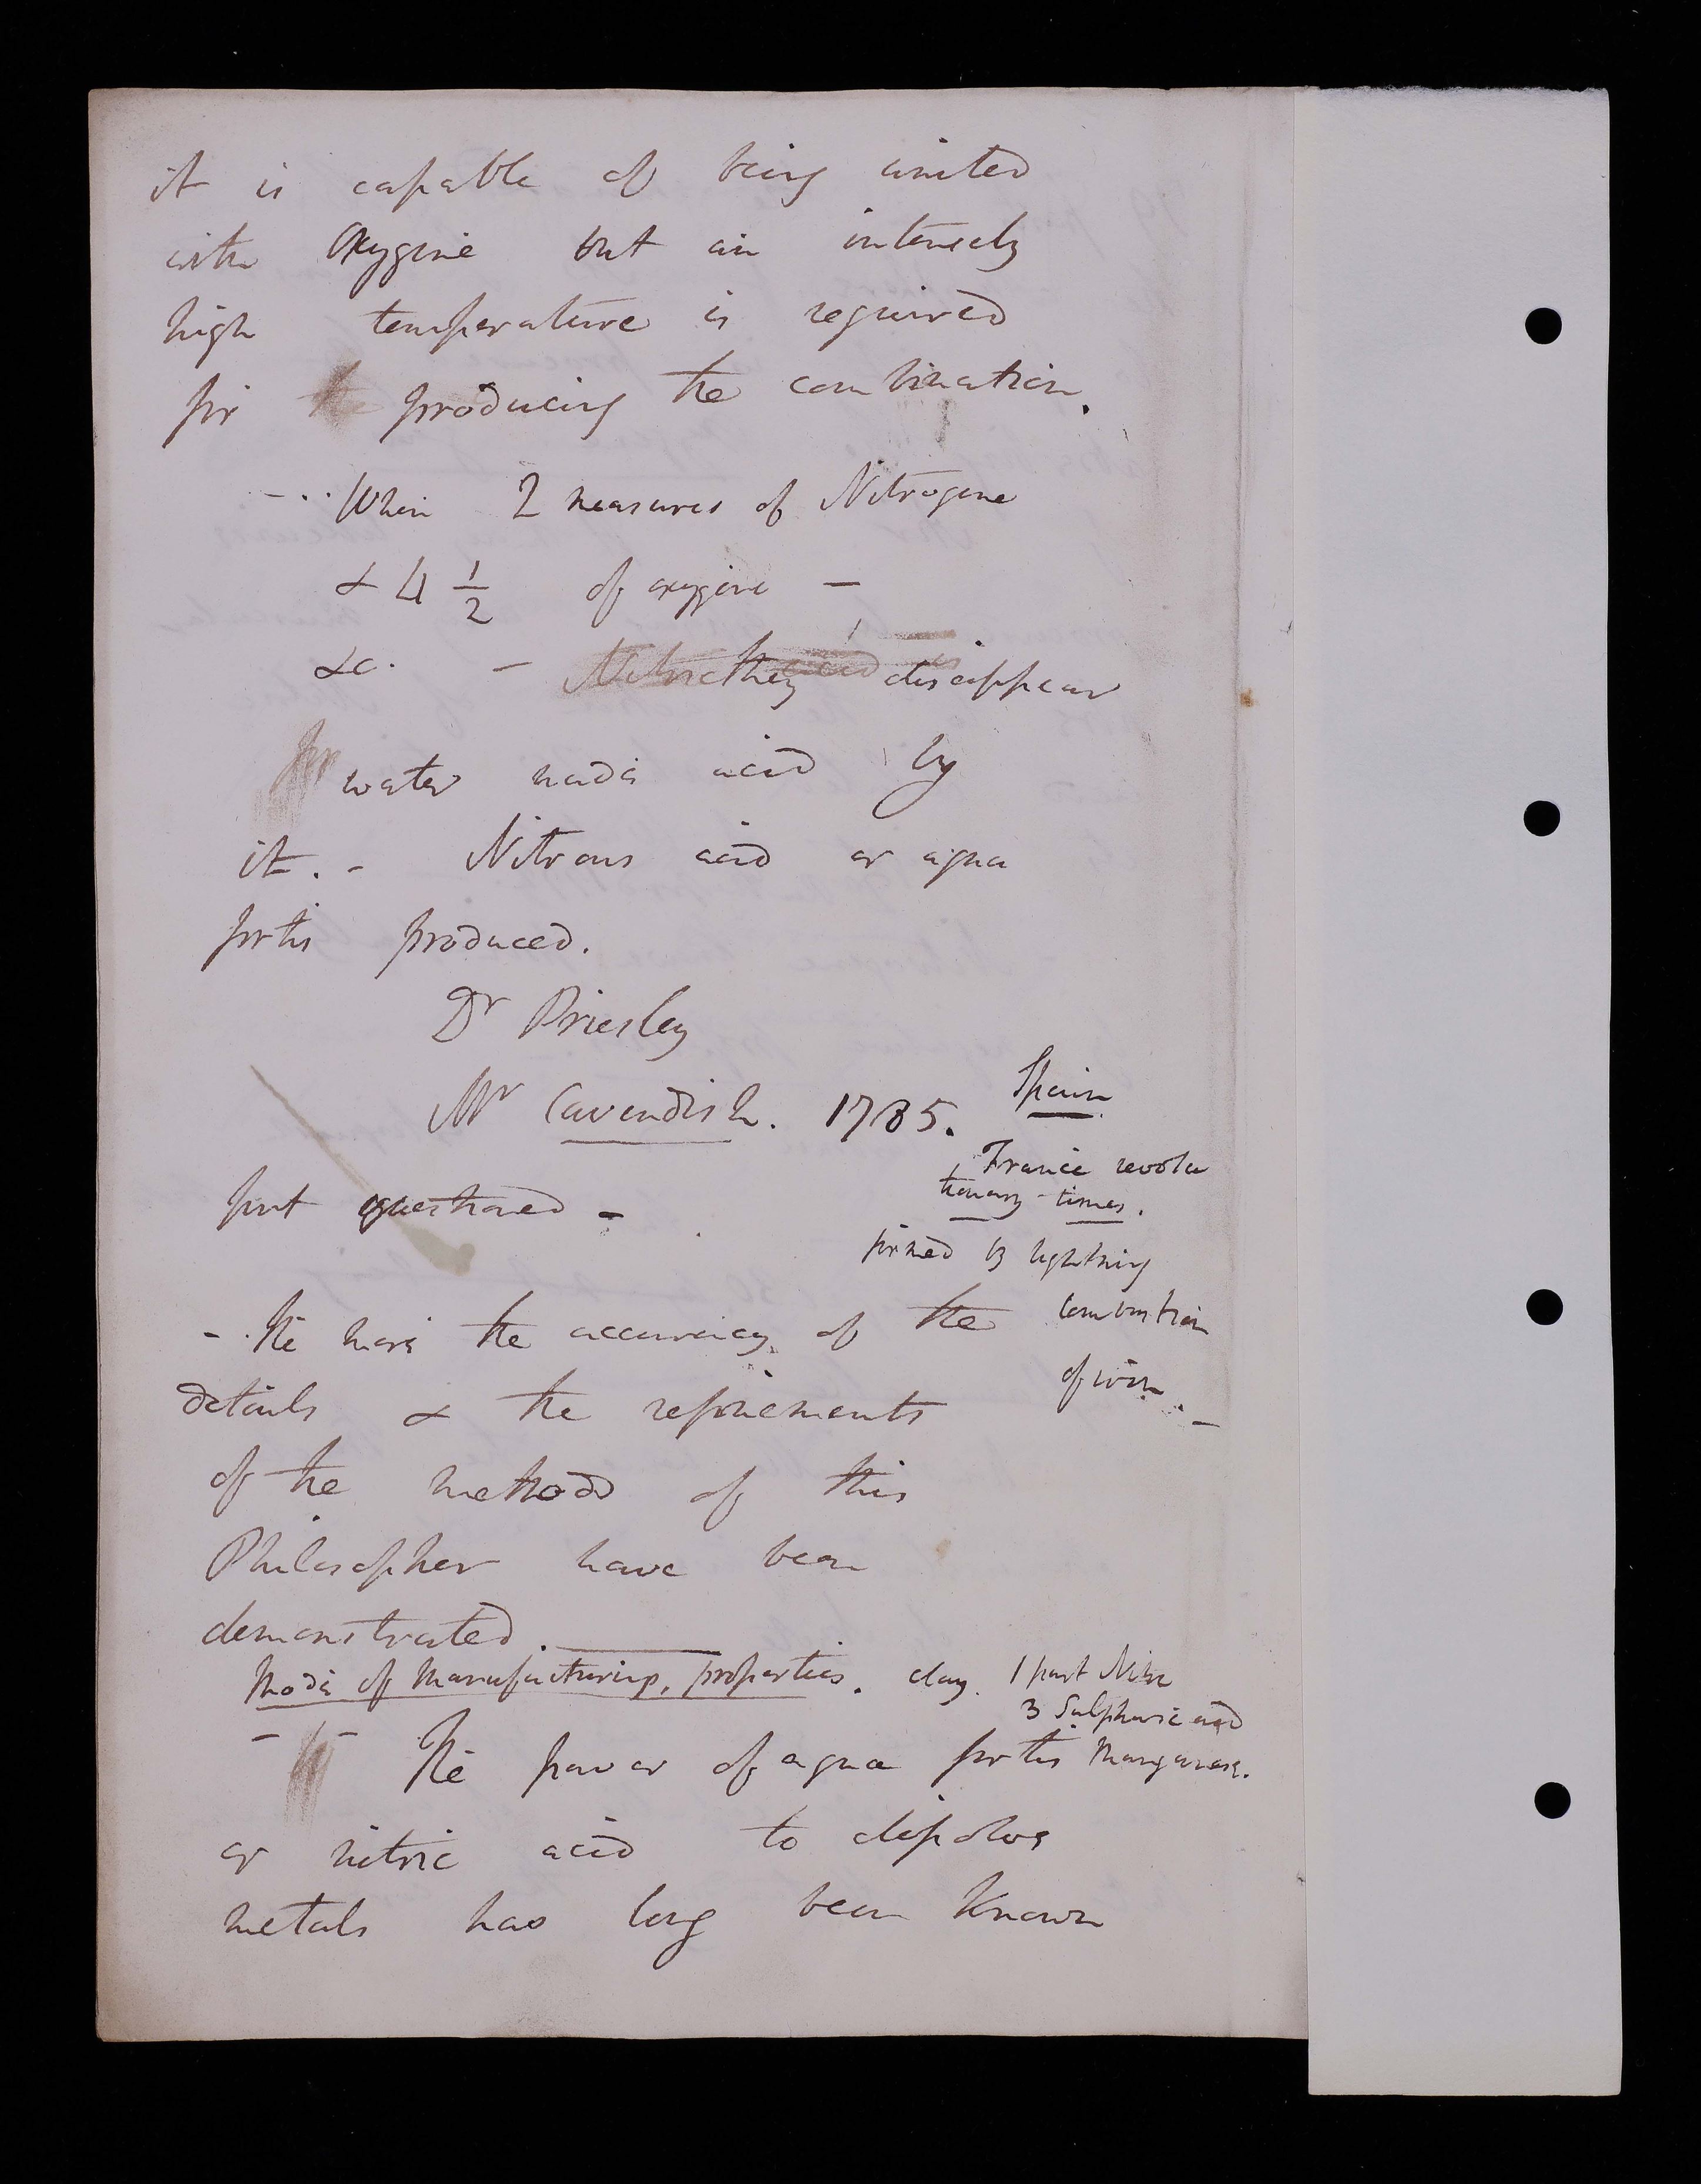 it is capable of being united
with Oxygene but an intensely
high temperature is required
for the producing the combination.
- .. When 2 measures of Nitrogene
& 4 1/2 of oxygene -
&c. - they disappear
water made acid by
it. - Nitrous acid or aqua
fortis produced.
Dr Priesley
Mr Cavendish. 1785.
Spain
France revolu
tionary - times.
first questioned -
formed by lightning
combustion
of iron. -
- . The more the accuracy of the
details & the refinements
of the methods of this
Philosopher have been
demonstrated.
Mode of Manufacturing, properties. clay. 1 part Nitre
3 Sulphuric acid
Manganese.
- - The power of aqua fortis
or nitric acid to dissolve
metals has long been known